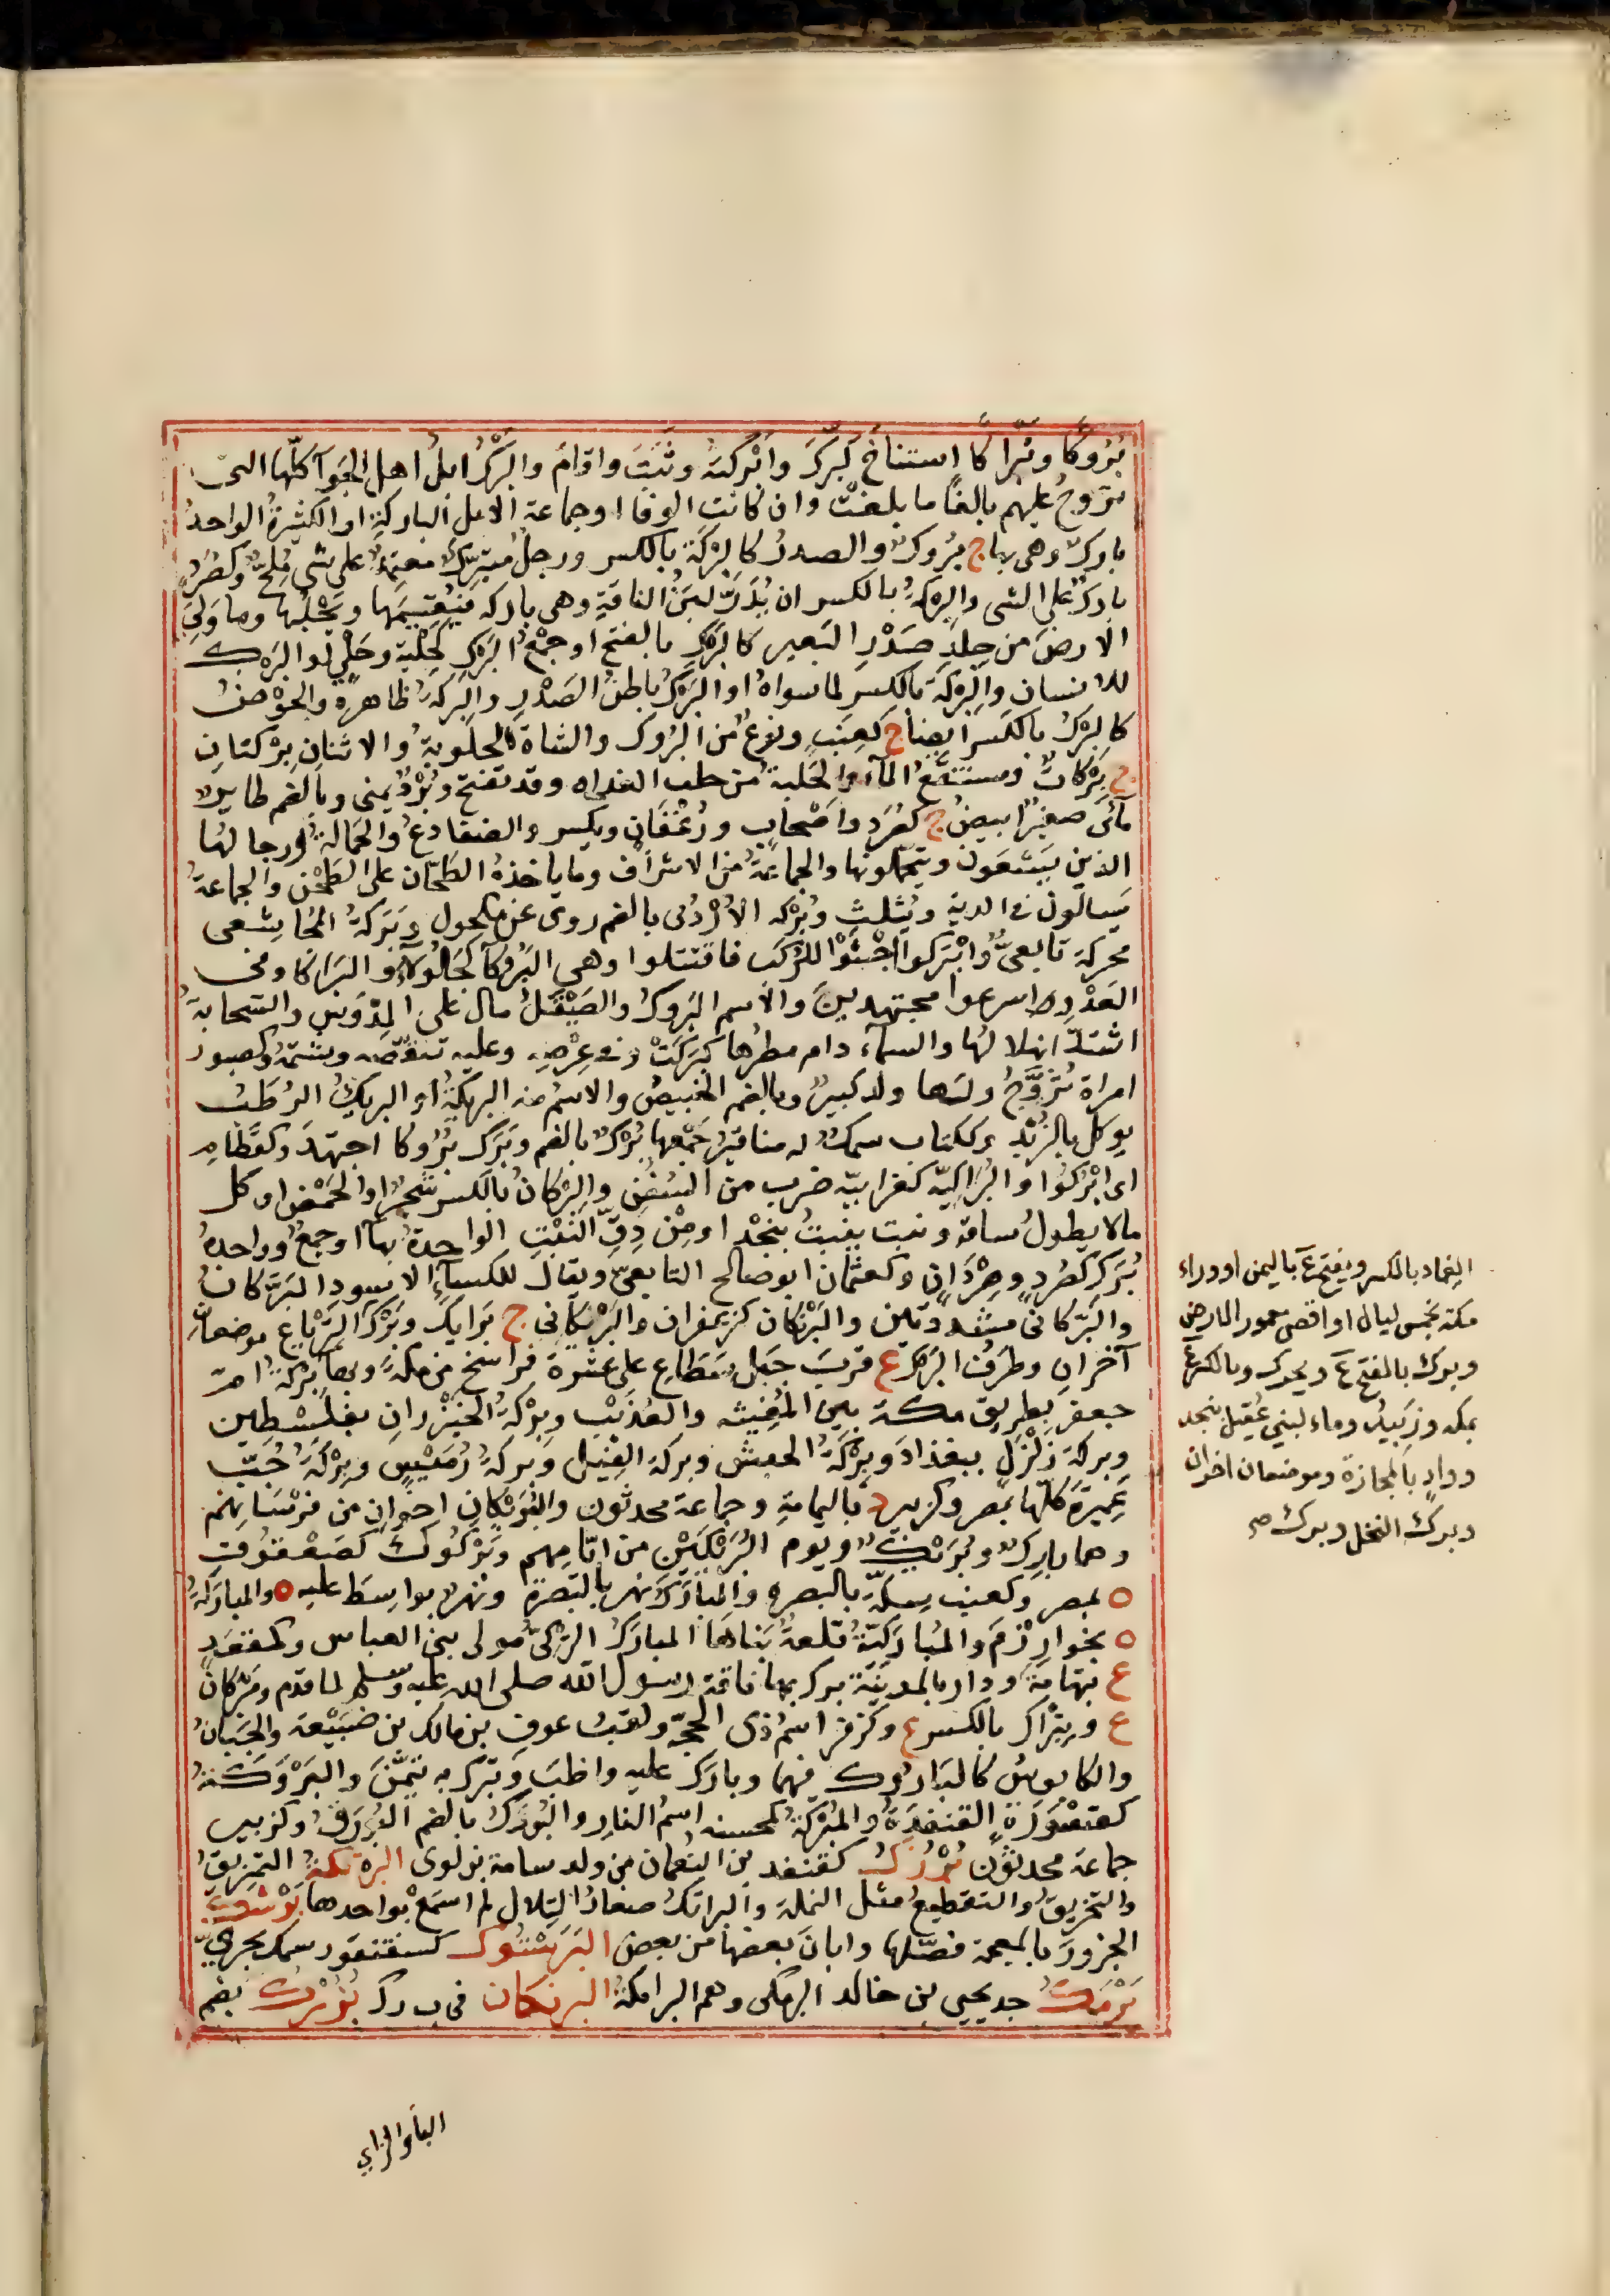 بُرُوكًا وتَبْراكًا استناخ كبَرَّكَ وابْركتهُ وثَبَتَ واقام والبَرْكُ ابلُ اهل الجَوآ كلّها التى
تروحُ عليهم بالغًا ما بلغتْ وان كانت الوفا او جماعة الابل الباركة او الكثيرةُ الواحدُ
باركٌ وهى بهاج بُرُوكٌ والصدرُ كالبِرْكَة بالكسر ورجلٌ مُبْتَرِكٌ معتمدٌ على شىٍ مُلِحٌّ وكصُرَدٍ
باركٌ على الشى والبِرْكةُ بالكسر ان يُدَرَّ لبَنُ الناقةِ وهى باركه فيُقِيمَها ويَحْلُبَها وما وَلِىَ
الارضَ من جِلدِ صَدْرِ البَعير كالبَرْكِ بالفتح او جمْعُ البَرْكِ كحِلْية وحَلْيٍ او البَرْك
للانسان والبِرْكة بالكسر لما سواهُ او البَرْكُ باطنُ الصَدْرِ والبِركةُ ظاهرهُ والحَوْضُ
كالبِرْكُ بالكَسر ايضا ج كعِنَبٍ ونوعٌ من البُرُوك والشاة الحلوبةُ والاثنانِ بِرْكتانِ
ج بِرْكاتٌ ومستنقعُ المآء والحَلبة من حلب الغداه وقد تفتح وبُرْدٌ يمنى وبالضم طايرٌ
مآئىّ صغيرٌ ابيضُ ج كصُرَد واصْحابٍ ورُغْفَان ويكسر والضفادعُ والحَمالةُ او رجالهُا
الذين يَسْعَون ويتحملونها والجماعَةُ من الاشراف وما ياخذهُ الطَحّان على الطَحْن والجماعةُ
يَسالون فى الدية ويُثلث وبُرْكه الاُرْدُنى بالضم روى عن مكحول وبَرَكةُ المُجاشعى
محركة تابعىٌّ وابْتركوا جَثَوْا للرُكَب فاقتتلوا وهى البَرُوكَآ كجَلُولآ والبَرَاكَا وفى
العَدْو اسرعوا مجتهدينَ والاسم البَرُوكُ والصَيْقَلُ مال على المِدْوَسِ والسّحابةُ
اشتدّ انهلالهُا والسمآء دام مطرُها كبَرَكَتْ وفى عِرْضِهِ وعليه تنقّصه وشتمهُ وكصبور
امراة تُزَوَّجُ ولها ولدٌ كبيرٌ وبالضم الخبيصُ والاسمُ منه البرِيكةُ او البريكُ الرُطَبُ
يوكل بالزُبْد وككتاب سمكٌ له مناقيرُ جَمْعها بُرْكٌ بالضم وبَرَك بُرُوكا اجتهدَ وكقَطامِ
اى ابْرُكُوا والبُرَاكِيّه كغرابيّه ضرب من السُفُنِ والبِرْكانُ بالكسر شجرٌ او الحَمْضُ او كل
مالا يطولُ ساقهُ ونبت ينبتُ بنجْد او مِنْ دِقّ النَبْتِ الواحِدةُ بهآ او جمعٌ وواحدهُ
بُرَكٌ كصُرَدٍ وصِرْدَانٍ وكعثمان ابو صالح التابعىّ ويقال للكسآء الاسود البَرَّكانُ
والبَرَّكانىّ مشددتين والبَرْنكان كزعفران والبَرْنكانى ج بَرانِك وبَرْكُ التِرْباع موضعان
آخران وطَرَفُ البَرْكِ ع قربَ جَبَلِ سَطَاعِ على عشرة فراسخ من مكةَ وبها بِرْكةُ امّ
جعفر بطريق مكة بين المُغِيثه والعُذَيْب وبِرْكةُ الخيزرانِ بفلسْطِين
وبركة زَلْزَلٍ ببغذادَ وبِرْكَةُ الحبش وبركة الفِيل وبركةُ رُمَيْسٍ وبِرْكَةُ جُبّ
عَمِيرَة كلّها بمصر وكزبير د باليمامةِ وجماعة محدثون والبُرَيْكانِ اخوانِ من فرْسَانهم
وهما بارِكٌ وبُرَيْكٌ ويوم البُرَيْكَيْنِ من ايّامهم وبَرْكُوكٌ كصَعْفوُق
ه بمصر وكعِنَبٍ سِكّةٌ بالبصره والمبَارَك نهر بالبَصرةِ ونهرٌ بواسِط عليه ه والمبارَكةُ
ه بخوارِزْمَ والمُبارَكِيّةُ قلعةٌ بَناهَا المبارَكُ التركىُّ مولى بنى العباس وكمقعَدٍ
ع بتهامة ودار بالمدينة برك بها ناقة رسول الله صلى الله عليه وسلم لما قدم ومَبْرَكان
ع وبِبْرَاك بالكسر ع وكزفر اسمُ ذى الحجّه ولقبُ عوفِ بن مالك بن ضُبَيْعة والجَبَانُ
والكابوسُ كالبَارُوك فيهما وبارك عليه واظَبَ وتَبَّرك به تيَمَّنَ والبَرْوَكَةُ
كقَسْوَرَةٍ القنفذةُ والمُبْرِكةُ كمحسنه اسمُ النارِ والبُورَكُ بالضم البُورَقُ وكزبير
جماعة محدثون بُرْزُكُ كقنفد بن النعمان من ولد سامة بن لوى البَرْتكةُ التمزيقُ
والتخريقُ والتقطيعُ مثل النملة والبراتكُ صغارُ التِلالِ لم اسْمَعْ بواحدها بَرْشَكَ
الجزورَ بالمعجمة فصّلها وابانَ بعضها من بعض البَرَسْتوُك كسقنقور سمك بحرىّ
بَرْمَكُ جد يحيى بن خالد البرمكى وهم البرامكة البرنكان فى ب ر ك بُوزُك بضم
الغِمَاد بالكسر ويفتح ع باليمن او وراء
مكة بخمس ليال او اقصى معمور الارض
وبرك بالفتح ع ويحرك وبالكسر ع
بمكه وزبيد وماء لبنى عُقيل بنجد
ووادٍ بالمجازة وموضعان اخران
وبرك النخل وبرك صح
البا والزاي